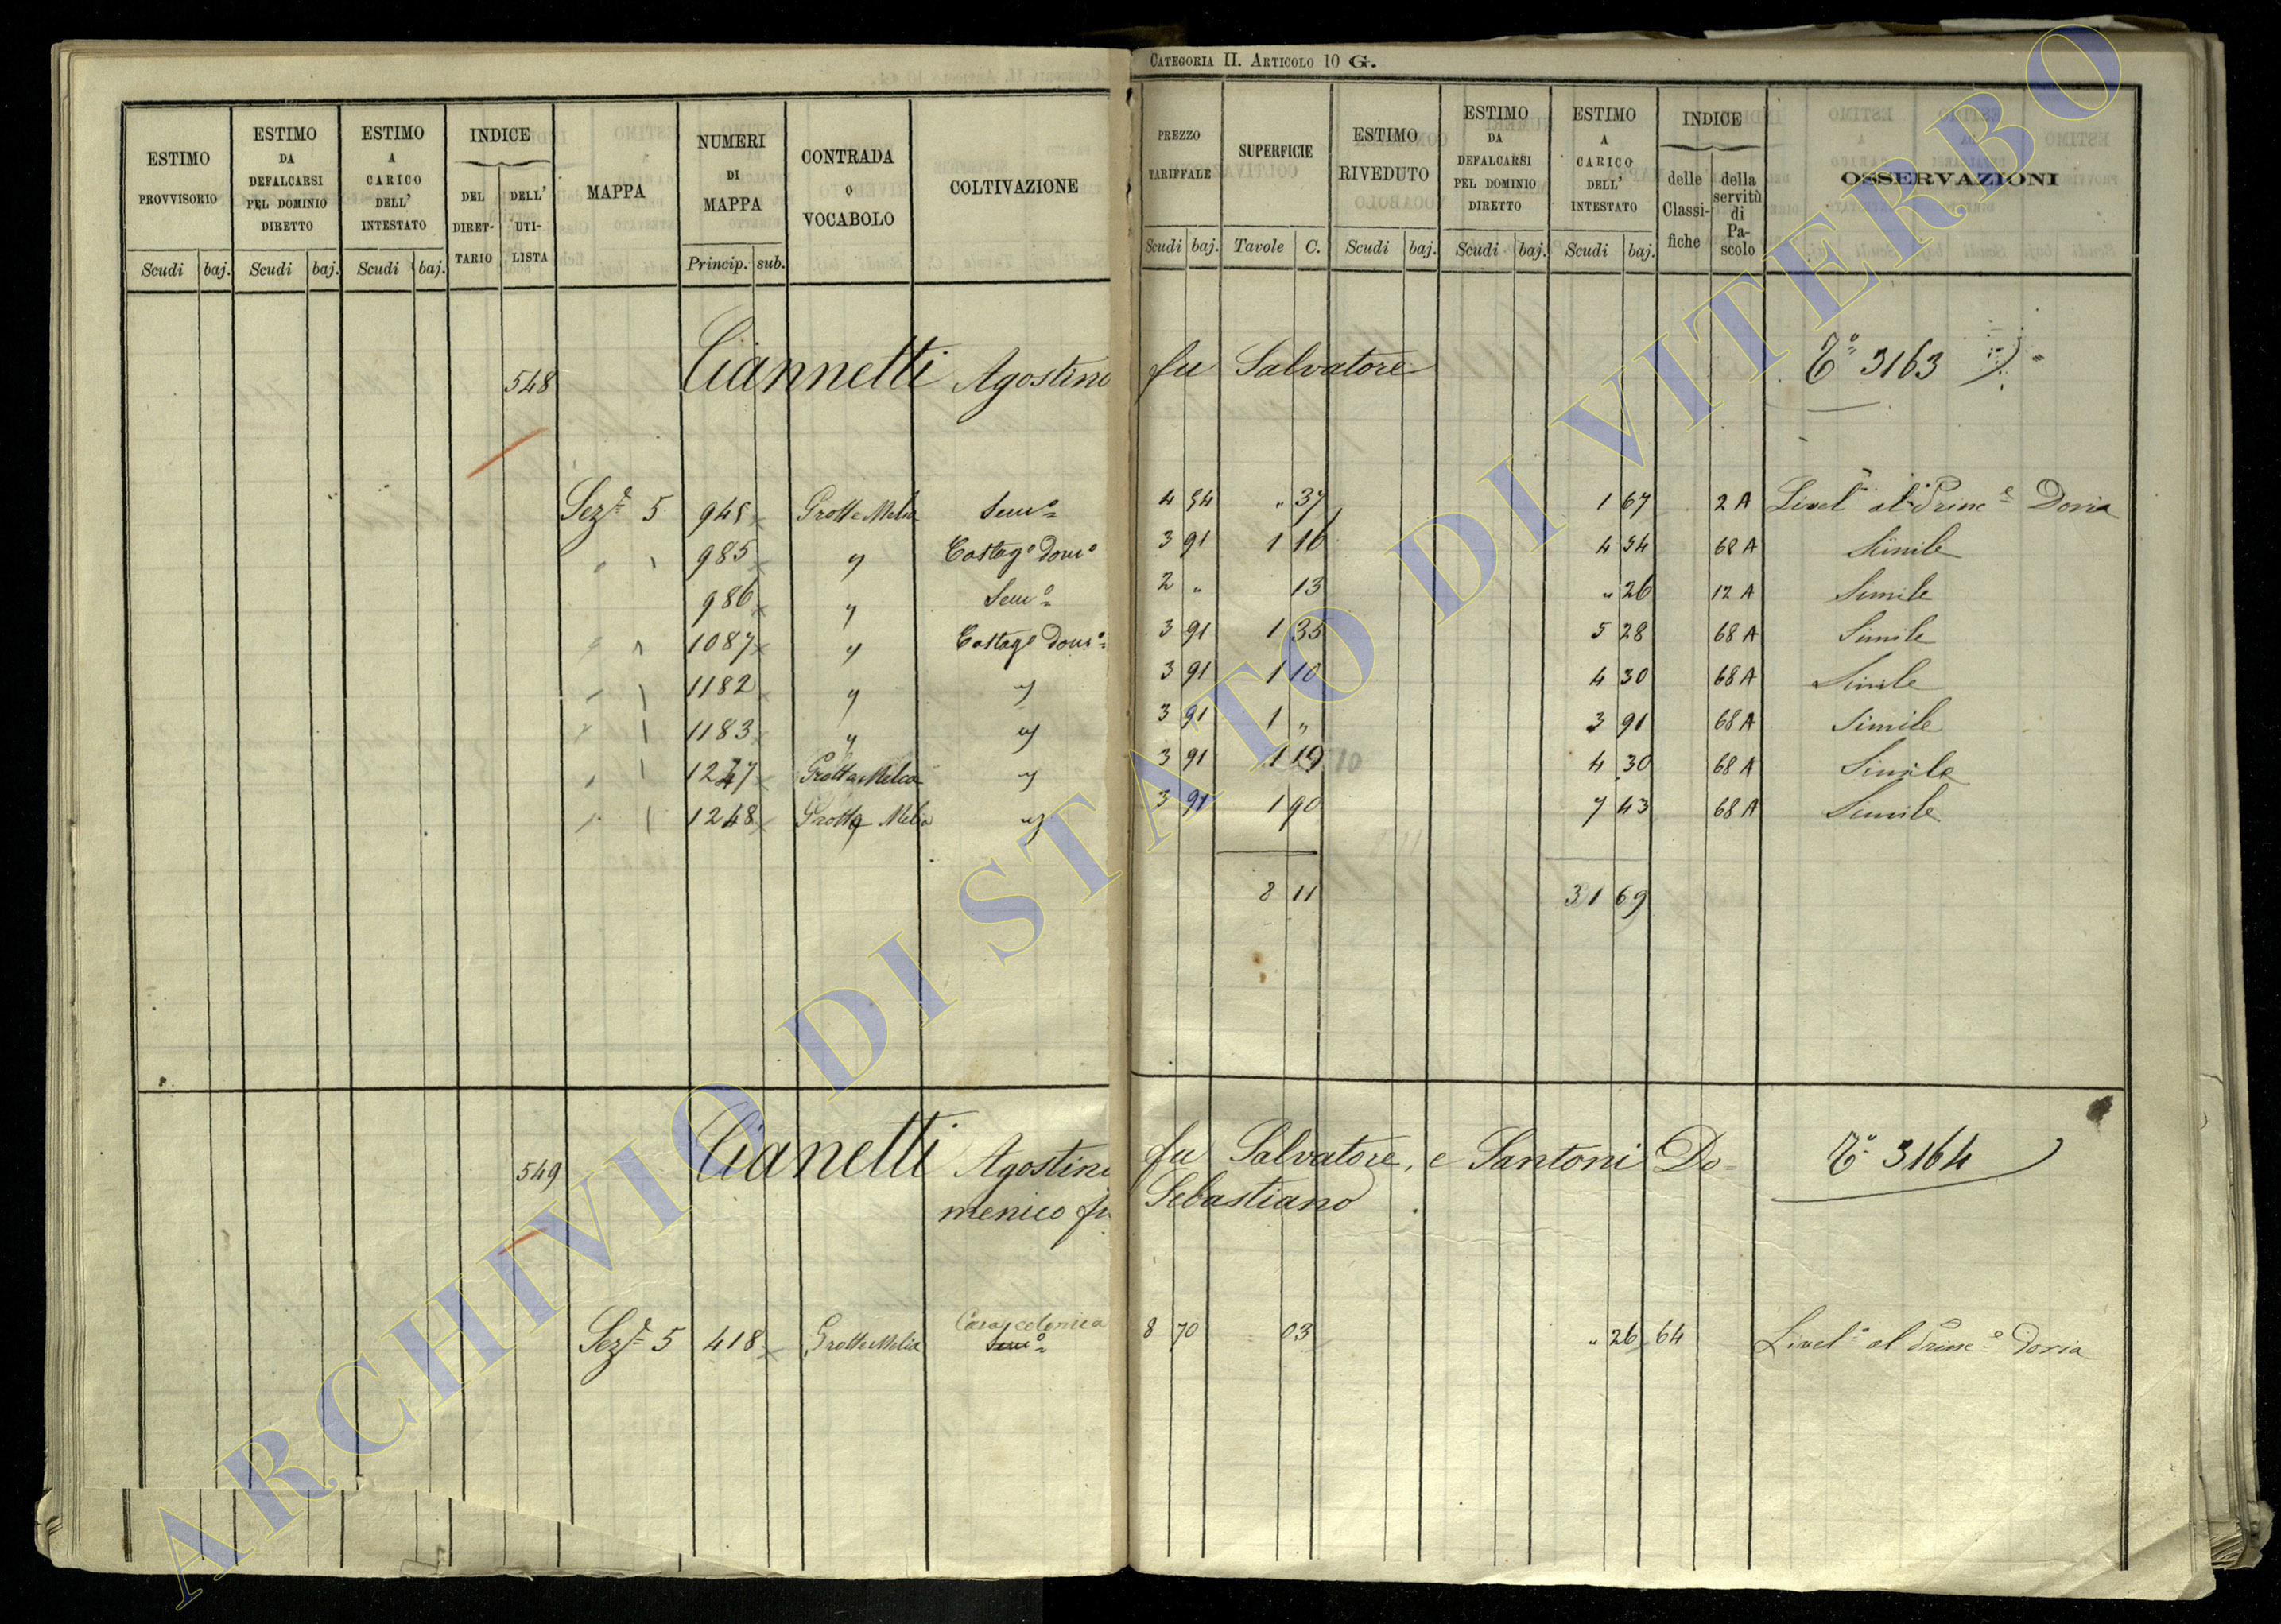 CATEGORIA II. ARTICOLO 10 G.
ESTIMO PROVVISORIO
ESTIMO DA DEFALCARSI PEL DOMINIO DIRETTO
ESTIMO A CARICO DELL' INTESTATO
INDICE
DEL DIRET-TARIO
DELL' UTI-LISTA
MAPPA
NUMERI DI MAPPA
CONTRADA O VOCABOLO
COLTIVAZIONE
PREZZO TARIFFALE
SUPERFICIE
ESTIMO RIVEDUTO
ESTIMO DA DEFALCARSI PEL DOMINIO DIRETTO
ESTIMO A CARICO DELL' INTESTATO
INDICE
delle Classi-fiche
della servitù di Pa-scolo
OSSERVAZIONI
Scudi baj. Scudi baj. Scudi baj. Princip. sub. Scudi baj. Tavole C. Scudi baj. Scudi baj. Scudi baj.
548 Ciannetti Agostino fu Salvatore 3163
Sez.e 5 945 Grotte Melia Sem.o 4 54 " 37 1 67 2 A Livel.o al Princ.e Doria
" " 985 " Castag.o Dom.o 3 91 1 16 4 54 68 A Simile
986 " Sem.o 2 " 13 " 26 12 A Simile
" " 1087 " Castag.o Dom.o 3 91 1 35 5 28 68 A Simile
" " 1182 " " 3 91 1 10 4 30 68 A Simile
" " 1183 " " 3 91 1 " 3 91 68 A Simile
" " 1247 Grotta Melia " 3 91 1 10 4 30 68 A Simile
" " 1248 Grotta Melia " 3 91 1 90 7 43 68 A Simile
8 11 31 69
549 Cianetti Agostino fu Salvatore, e Santoni Do= 3164
menico fu Sebastiano
Casa colonica
Sez.e 5 418 Grotte Melia Sem.o 8 70 03 " 26 64 Livel.o al Princ.e Doria
ARCHIVIO DI STATO DI VITERBO